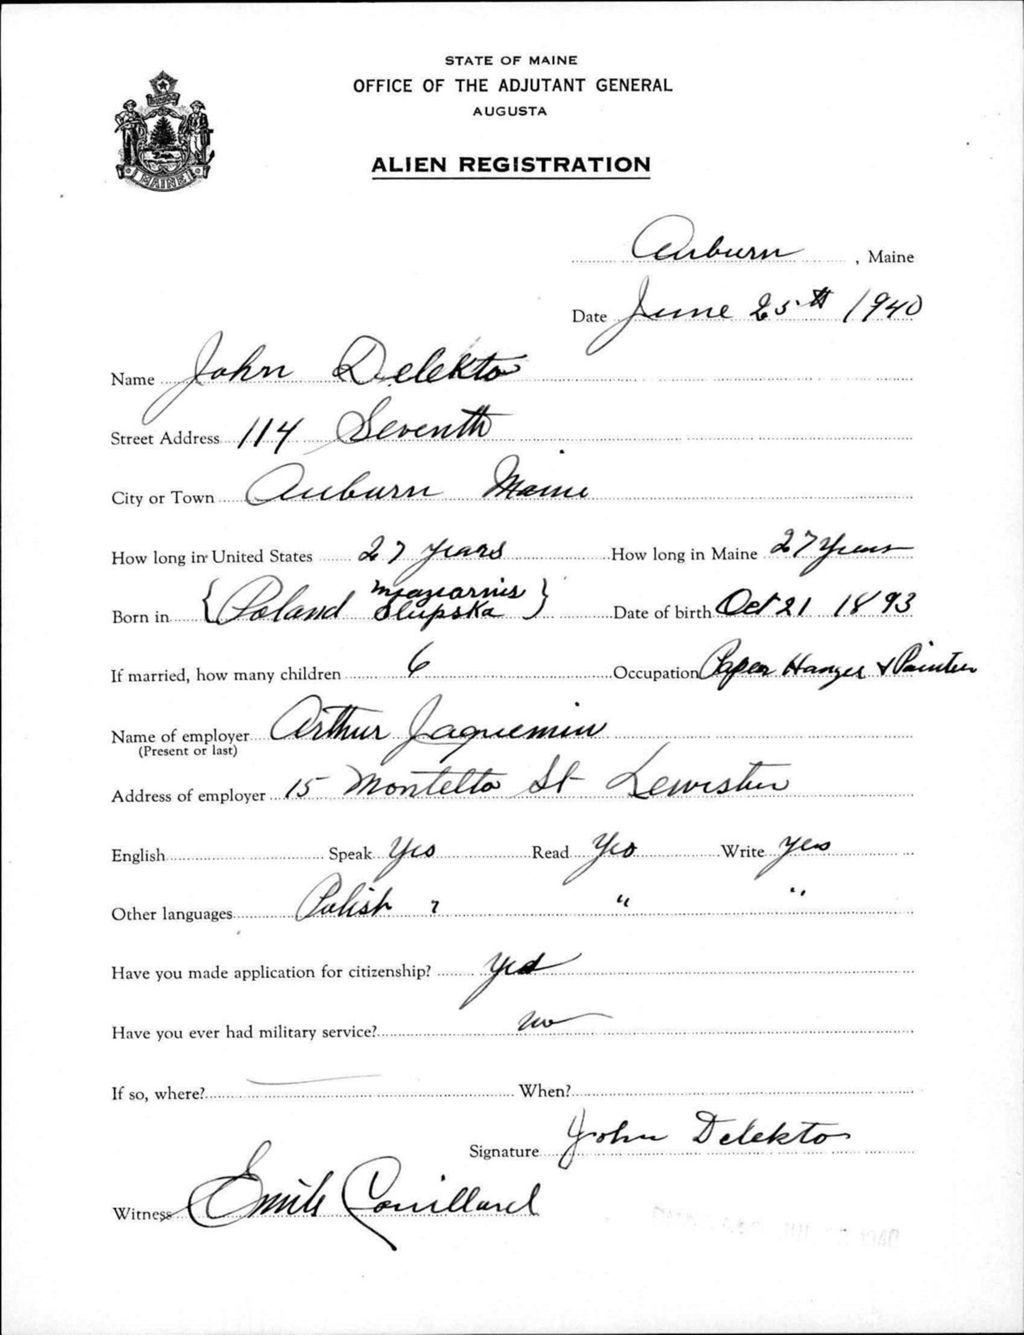 STATE OF MAINE
OFFICE OF THE ADJUTANT GENERAL
AUGUSTA
ALIEN REGISTRATION
MAINE
Auburn, Maine
Date June 25th 1940
Name John Delekto
Street Address 114 Seventh
City or Town Auburn Maine
How long in United States 27 years How long in Maine 27 Years
Born in { Poland Slupska } Date of birth Oct 21 1893
If married, how many children 6 Occupation Paper Hanger & Painter
Name of employer Arthur Jaquemin
(Present or last)
Address of employer 15 Montello St Lewiston
English Speak Yes Read Yes Write yes
Other languages Polish " " "
Have you made application for citizenship? Yes
Have you ever had military service? no
If so, where? When?
Signature John Delekto
Witness Emile Couillard